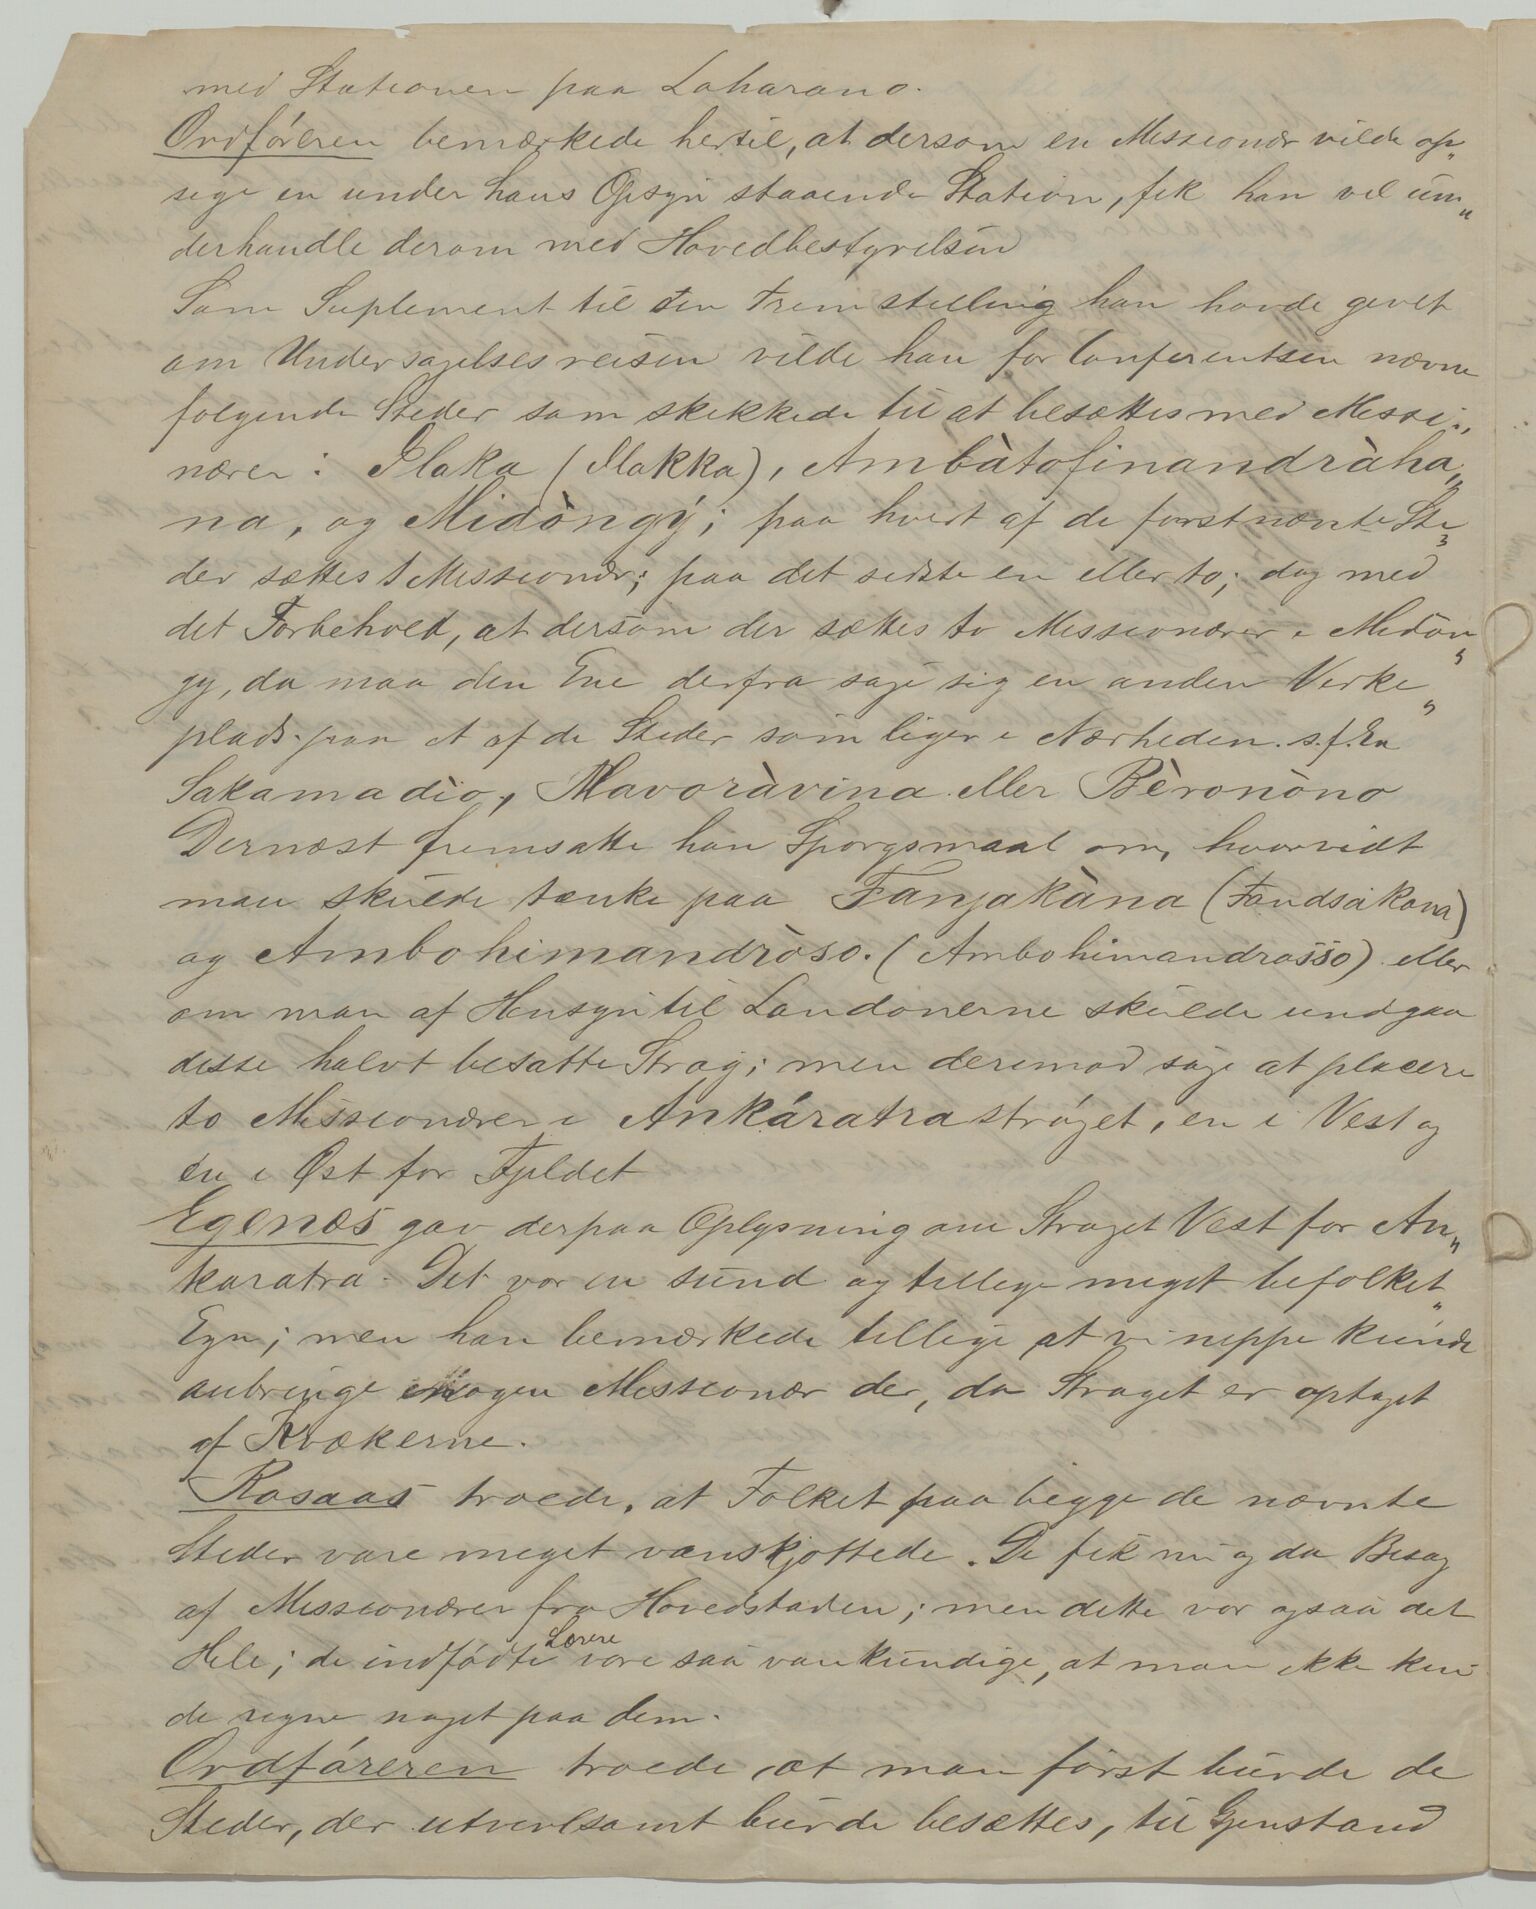 med Stationen paa Loharano.
Ordføreren bemærkede hertil, at dersom en Missionær vilde op„
sige en under hans Opsyn staaende Station, fik han vel un„
derhandle derom med Hovedbestyrelsen
Som Suplement til den Fremstilling han havde givet
om Undersøgelsesreisen vilde han for Conferentsen nævne
følgende Steder som skikkede til at besættes med Missi„
nærer: Ilaka (Ilakka), Ambàtofinandràha„
na, og Midòngý; paa hvert af de førstnævnte Ste„
der sættes 1 Missionær; paa det sidste en eller to; dog med
det Forbehold, at dersom der sættes to Missionærer i Midòn„
gy, da maa den Ene derfra søge sig en anden Virke„
plads paa et af de Steder som ligger i Nærheden. s.f.Ex
Sakamadìo, Mavoràvina eller Bèronòno
Dernæst fremsatte han Spørgsmaal om, hvorvidt
man skulde tænke paa Fanjakàna (Fandsakana)
og Ambohimandròso. (Ambohimandrosso) eller
om man af Hensyn til Londonerne skulde undgaa
disse halvt besatte Strøg; men derimod søge at placere
to Missionærer i Ankáratrastrøget, en i Vest og
en i Øst for Fjeldet
Egenæs gav derpaa Oplysning om Strøget Vest for An„
karatra. Det var en sund og tillige meget befolket„
Egn; men han bemærkede tillige at vi neppe kunde
anbringe nogen Missionær der, da Strøget er optaget
af Kvækerne.
Rosaas troede, at Folket paa begge de nævnte
Steder vare meget vanskjøttede. De fik nu og da Besøg
af Missionærer fra Hovedstaden; men dette var ogsaa det
Hele; de indfødte Lærere vare saa vankundige, at man ikke kun
de regne noget paa dem.
Ordføreren troede, at man først burde de
Steder, der utvivlsomt burde besættes, til Gjenstand